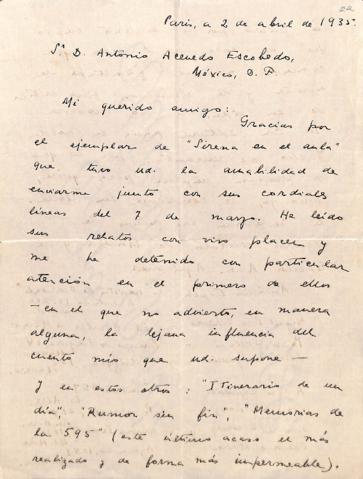 22
París, a 2 de abril de 1935.
Sr. D. Antonio Acevedo Escobedo,
México, D. F.
Mi querido amigo:
Gracias por
el ejemplar de "Sirena en el aula"
que tuvo ud. la amabilidad de
enviarme junto con sus cordiales
líneas del 7 de marzo. He leído
sus relatos con vivo placer y
me he detenido con particular
atención en el primero de ellos
—en el que no advierto, en manera
alguna, la lejana influencia del
cuento mío que ud. supone—
y en estos otros: "Itinerario de un
día", "Rumor sin fin", "Memorias de
la 595" (este último acaso el más
realizado y de forma más impermeable).